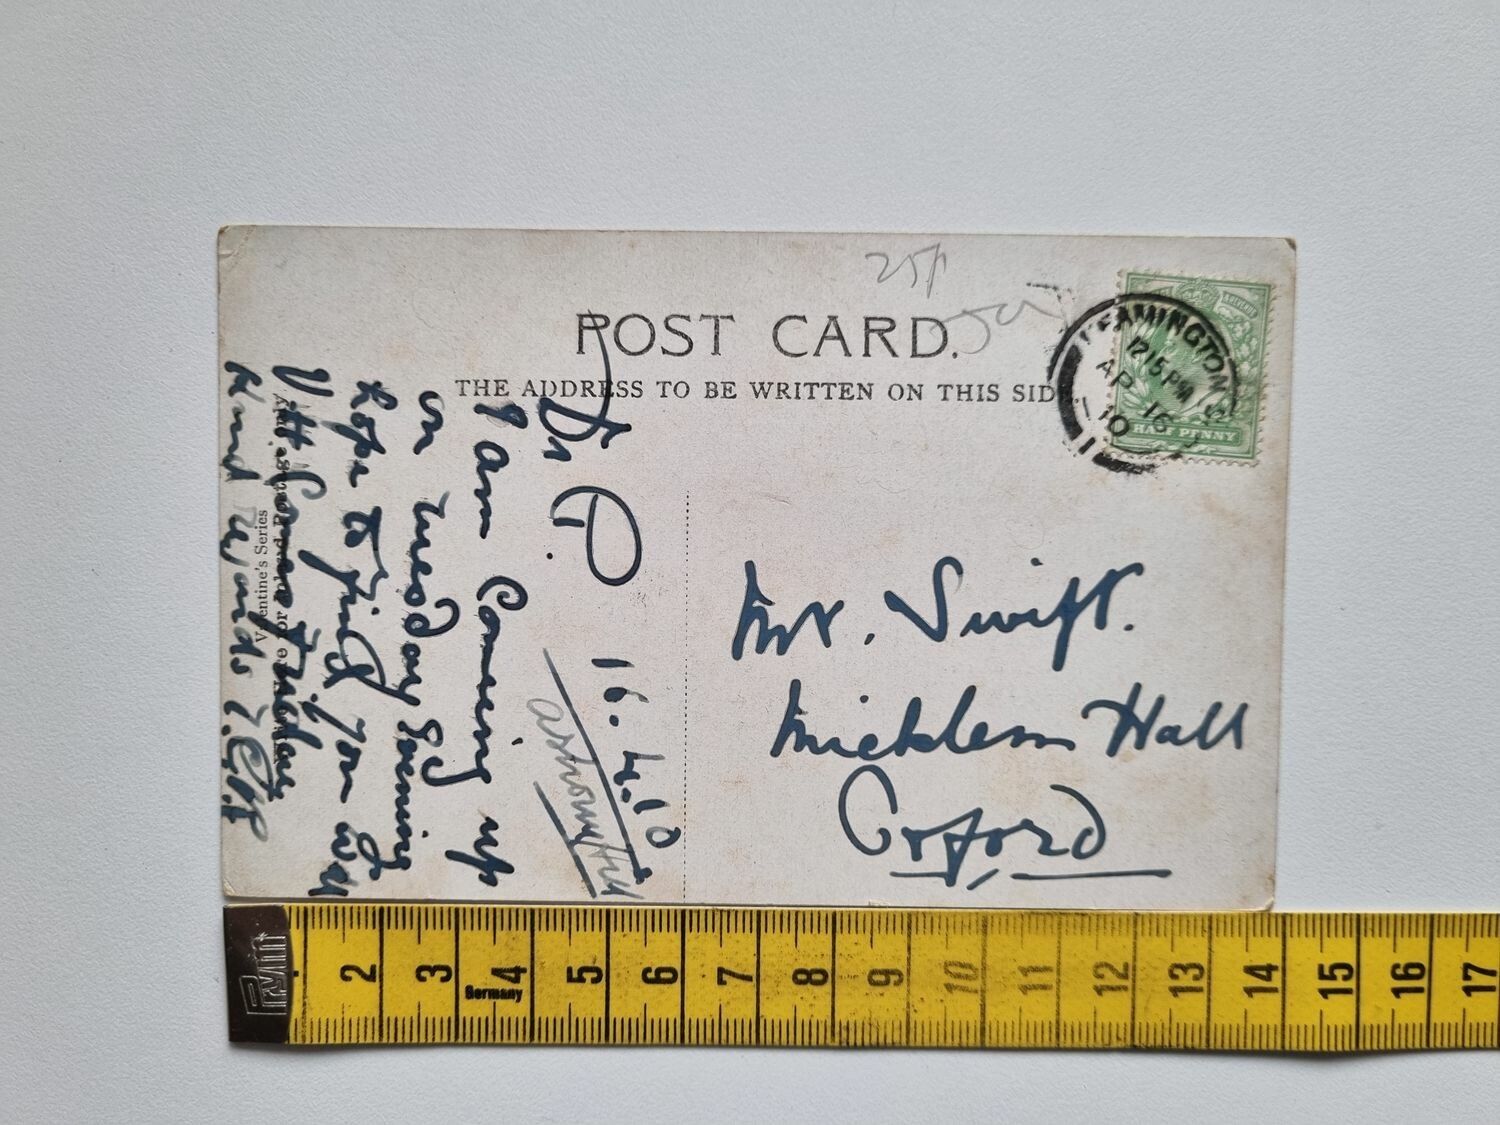 25p
POST CARD.
THE ADDRESS TO BE WRITTEN ON THIS SIDE.
LEAMINGTON S.
12 15 PM
AP 16
10
HALF PENNY
Mr. Swift.
Micklem Hall
Oxford
16.4.10
Dr P.
I am coming up
on Tuesday evening
hope to find you
kind regards
Valentine's Series
for Inland Postage only
2
3
4
Germany
5
6
7
8
9
10
11
12
13
14
15
16
17